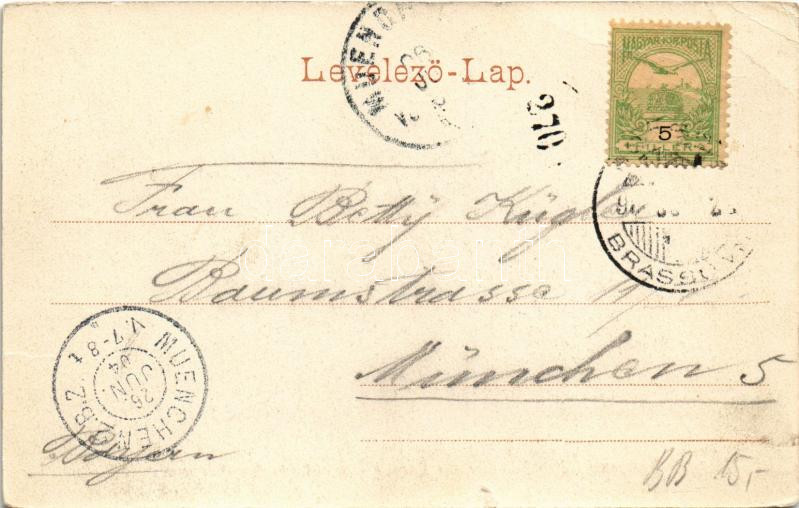 MAGYAR KIR. POSTA
5
FILLÉR
Levelező-Lap.
MUENCH
270
BRASSÓ
Frau Betty Kügler
Baumstrasse
München 5
Bayern
MUENCHEN 2.B.Z
26 JUN 04
V. 7-8
BB 15,-
darabanth